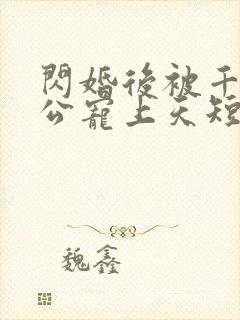 閃婚後被千
公寵上天短
魏鑫